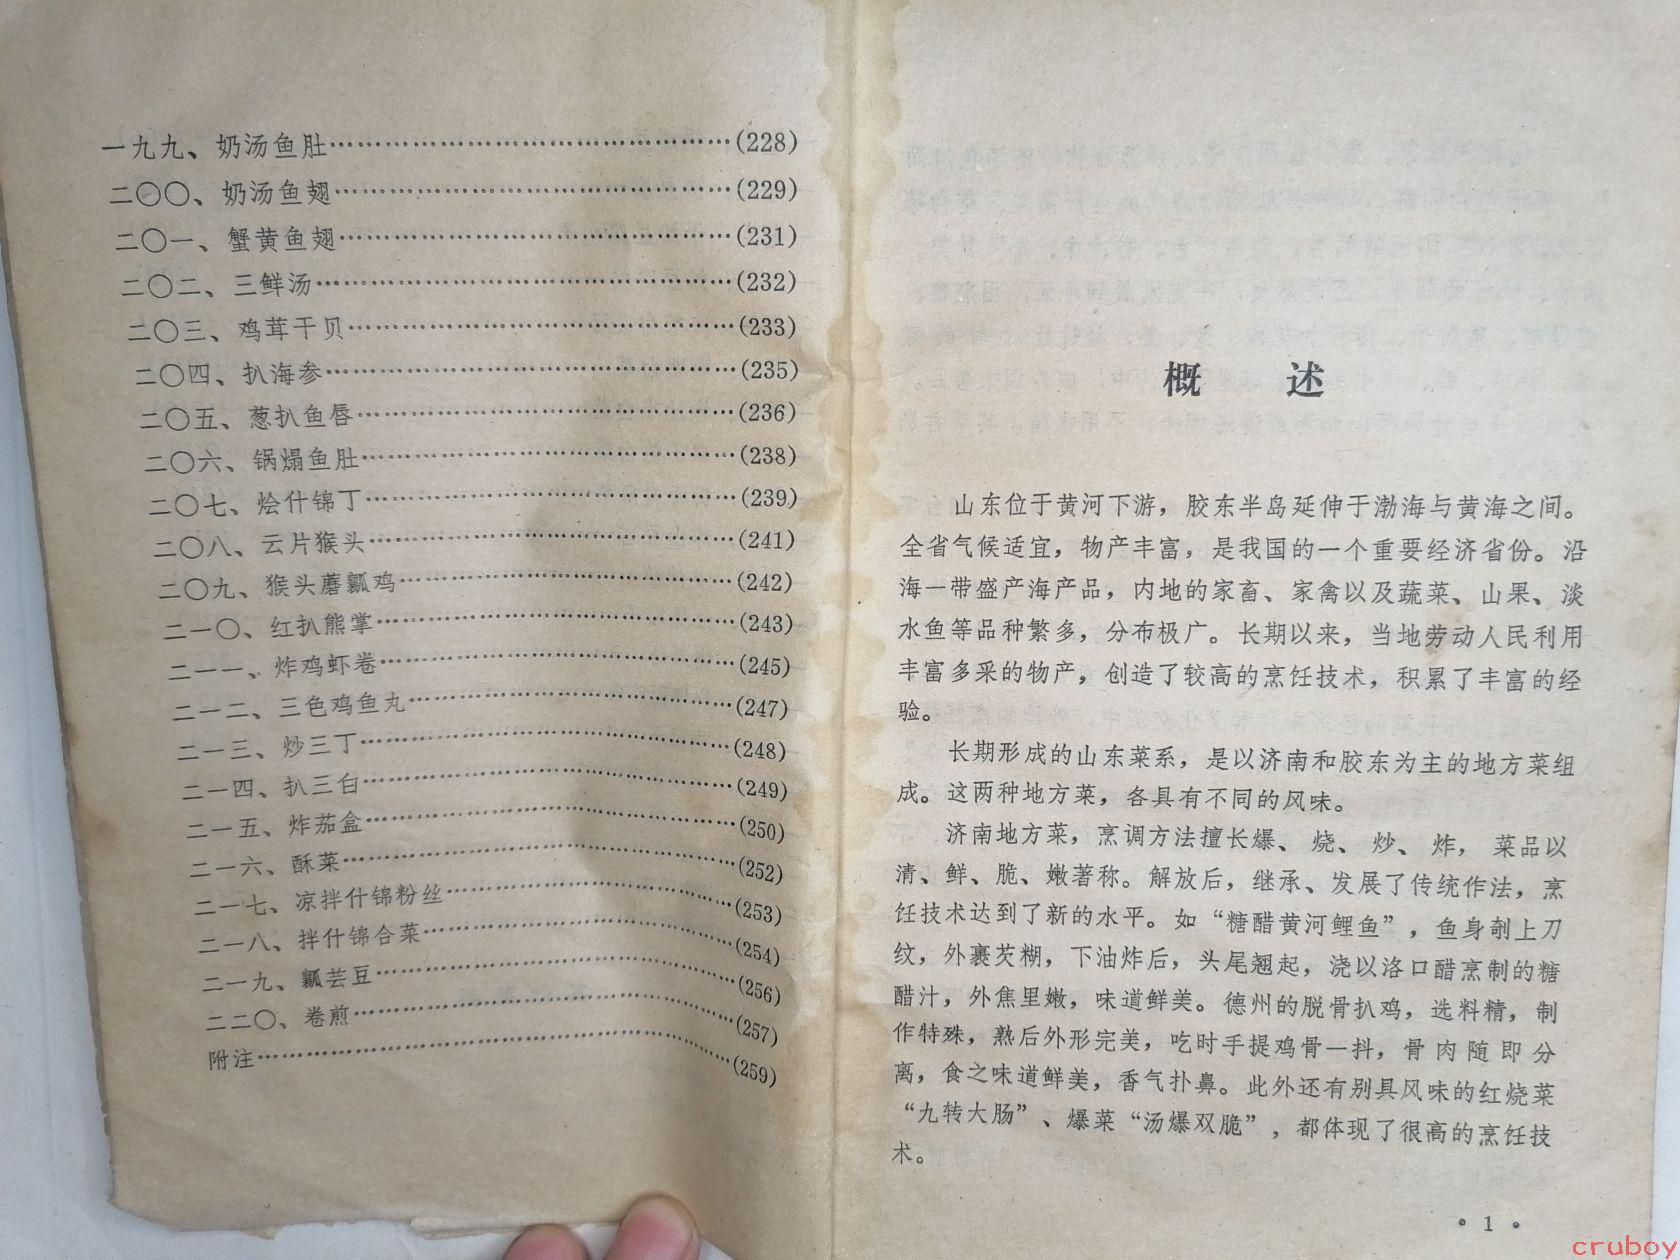 一九九、奶汤鱼肚……(228)
二〇〇、奶汤鱼翅……(229)
二〇一、蟹黄鱼翅……(231)
二〇二、三鲜汤……(232)
二〇三、鸡茸干贝……(233)
二〇四、扒海参……(235)
二〇五、葱扒鱼唇……(236)
二〇六、锅煽鱼肚……(238)
二〇七、烩什锦丁……(239)
二〇八、云片猴头……(241)
二〇九、猴头蘑瓤鸡……(242)
二一〇、红扒熊掌……(243)
二一一、炸鸡虾卷……(245)
二一二、三色鸡鱼丸……(247)
二一三、炒三丁……(248)
二一四、扒三白……(249)
二一五、炸茄盒……(250)
二一六、酥菜……(252)
二一七、凉拌什锦粉丝……(253)
二一八、拌什锦合菜……(254)
二一九、瓤芸豆……(256)
二二〇、卷煎……(257)
附注……(259)
概 述
山东位于黄河下游，胶东半岛延伸于渤海与黄海之间。
全省气候适宜，物产丰富，是我国的一个重要经济省份。沿
海一带盛产海产品，内地的家畜、家禽以及蔬菜、山果、淡
水鱼等品种繁多，分布极广。长期以来，当地劳动人民利用
丰富多采的物产，创造了较高的烹饪技术，积累了丰富的经
验。
长期形成的山东菜系，是以济南和胶东为主的地方菜组
成。这两种地方菜，各具有不同的风味。
济南地方菜，烹调方法擅长爆、烧、炒、炸，菜品以
清、鲜、脆、嫩著称。解放后，继承、发展了传统作法，烹
饪技术达到了新的水平。如“糖醋黄河鲤鱼”，鱼身剞上刀
纹，外裹芡糊，下油炸后，头尾翘起，浇以洛口醋烹制的糖
醋汁，外焦里嫩，味道鲜美。德州的脱骨扒鸡，选料精，制
作特殊，熟后外形完美，吃时手提鸡骨一抖，骨肉随即分
离，食之味道鲜美，香气扑鼻。此外还有别具风味的红烧菜
“九转大肠”、爆菜“汤爆双脆”，都体现了很高的烹饪技
术。
• 1 •
cruboy